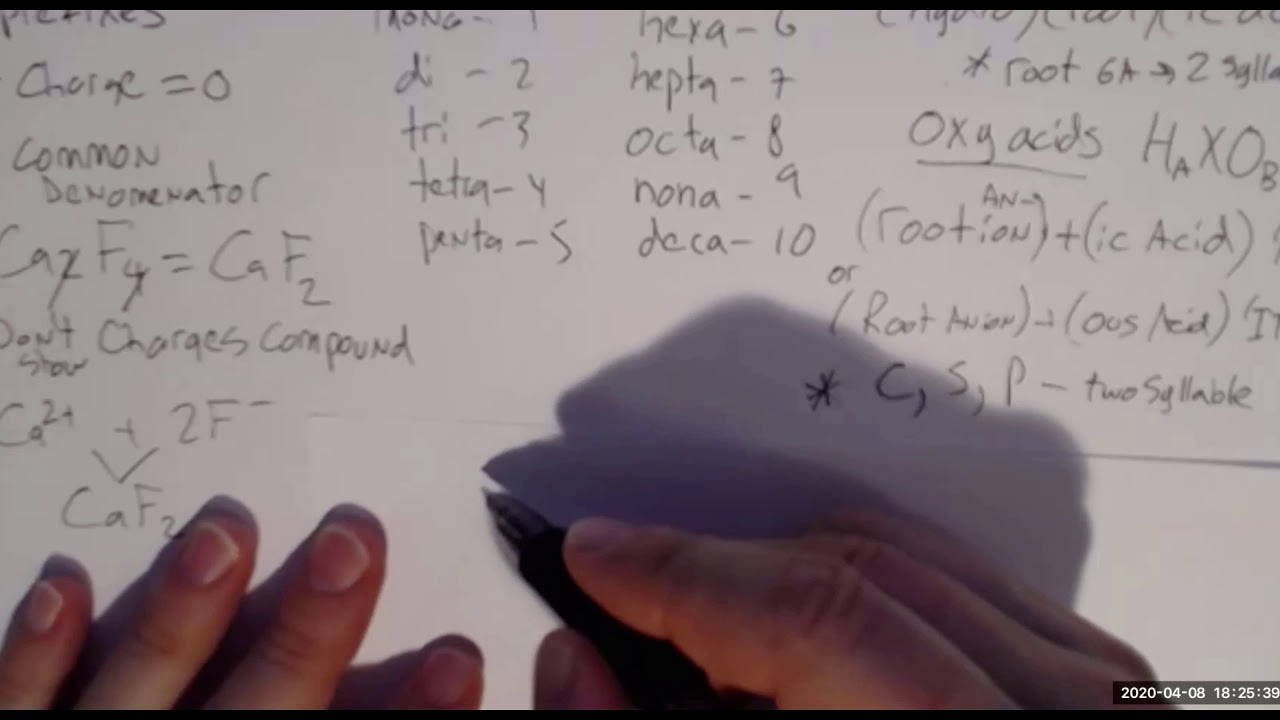 prefixes
Charge = 0
Common
Denomenator
CaxFy = CaF2
Don't Show Charges Compound
Ca2+ + 2F-
CaF2
mona - 1
di - 2
tri - 3
tetra - 4
penta - 5
hexa - 6
hepta - 7
octa - 8
nona - 9
deca - 10
* root 6A → 2 sylla
Oxyacids HAXOB
(root ion) + (ic Acid)
AN→
or
(Root Anion) + (ous Acid) (IT
* C, S, P - two Syllable
2020-04-08 18:25:39